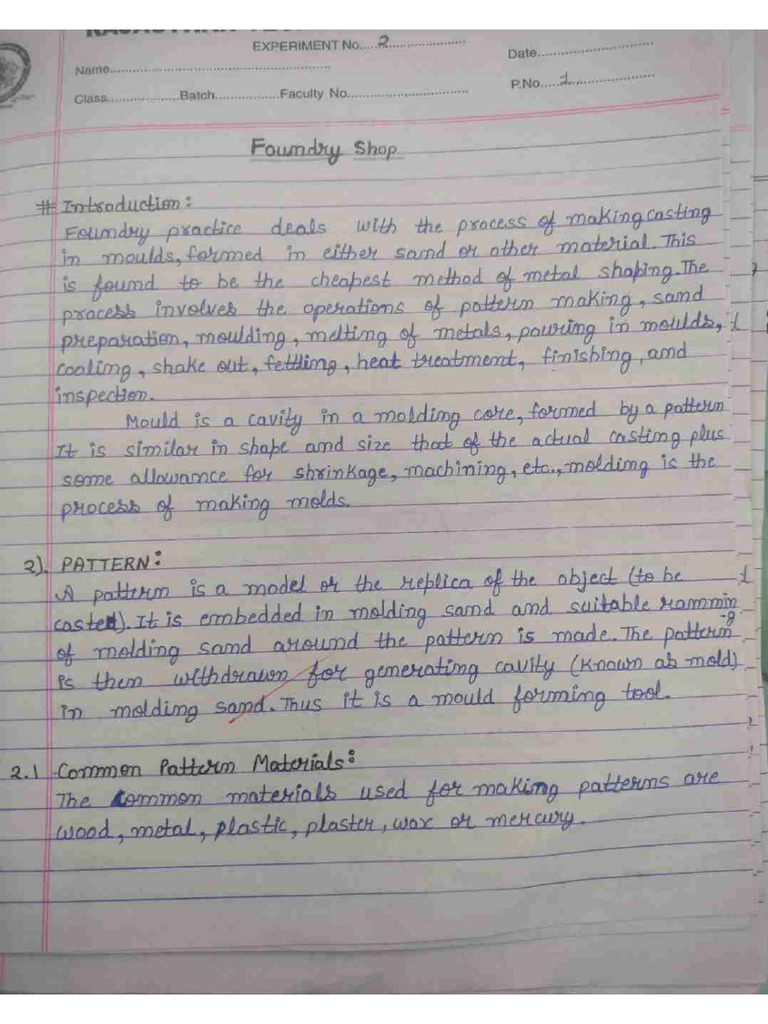 EXPERIMENT No.....2.....................
Date..............................
Name.................................................................
P.No....1..........................
Class...................Batch.................Faculty No................................
Foundry Shop
# Introduction:
Foundry practice deals with the process of making casting
in moulds, formed in either sand or other material. This
is found to be the cheapest method of metal shaping. The
process involves the operations of pattern making, sand
preparation, moulding, melting of metals, pouring in moulds,
cooling, shake out, fettling, heat treatment, finishing, and
inspection.
Mould is a cavity in a molding core, formed by a pattern
It is similar in shape and size that of the actual casting plus
some allowance for shrinkage, machining, etc., molding is the
process of making molds.
2). PATTERN:
A pattern is a model or the replica of the object (to be
casted). It is embedded in molding sand and suitable rammin
-g
of molding sand around the pattern is made. The pattern
is then withdrawn for generating cavity (known as mold)
in molding sand. Thus it is a mould forming tool.
2.1 Common Pattern Materials:
The common materials used for making patterns are
wood, metal, plastic, plaster, wax or mercury.